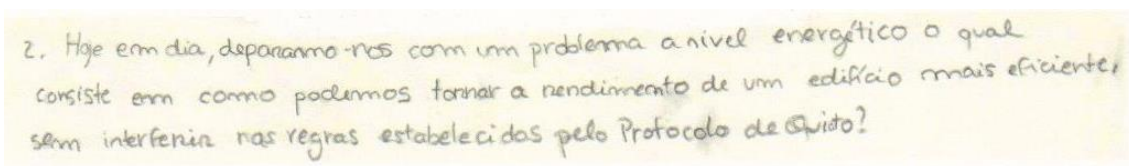 2. Hoje em dia, deparamo-nos com um problema a nivel energético o qual
consiste em como podemos tornar a rendimento de um edifício mais eficiente,
sem interferir nas regras estabelecidos pelo Protocolo de Quioto?